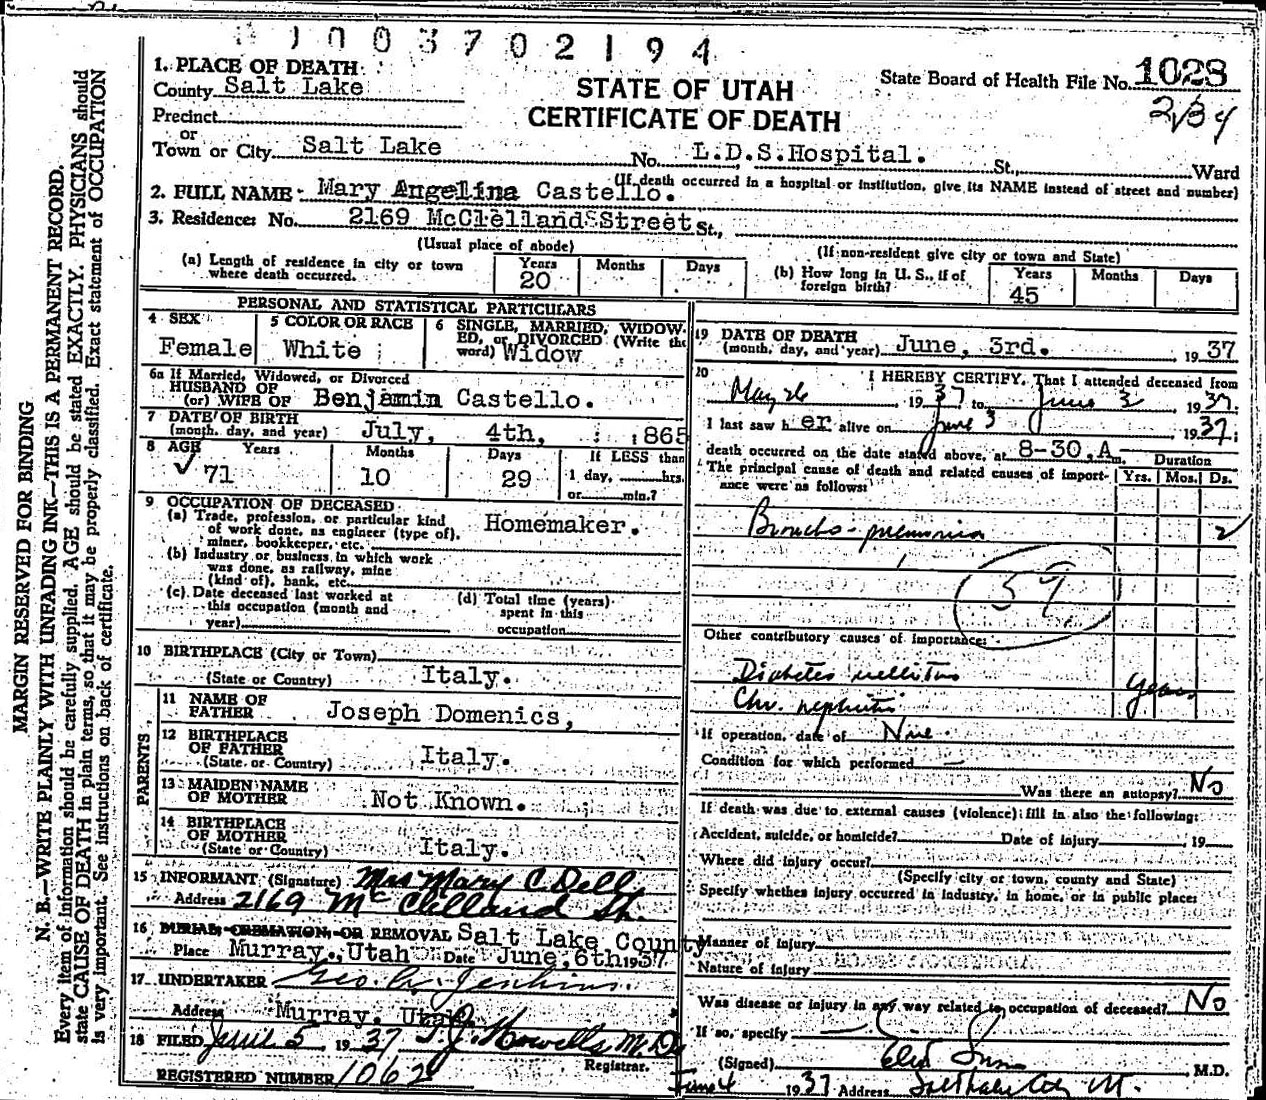 1003702194
1. PLACE OF DEATH
County Salt Lake
STATE OF UTAH
CERTIFICATE OF DEATH
State Board of Health File No. 1028
Precinct
or
Town or City Salt Lake No. L.D.S.Hospital. St., Ward
(If death occurred in a hospital or institution, give its NAME instead of street and number)
2. FULL NAME Mary Angelina Castello.
3. Residence: No. 2169 McClelland Street St.,
(Usual place of abode) (If non-resident give city or town and State)
(a) Length of residence in city or town where death occurred. Years 20 Months Days
(b) How long in U. S., if of foreign birth? Years 45 Months Days
PERSONAL AND STATISTICAL PARTICULARS
4 SEX Female
5 COLOR OR RACE White
6 SINGLE, MARRIED, WIDOWED, or DIVORCED (Write the word) Widow
6a If Married, Widowed, or Divorced
HUSBAND OF
(or) WIFE OF Benjamin Castello.
7 DATE OF BIRTH
(month, day, and year) July, 4th, 1865
8 AGE Years 71 Months 10 Days 29
If LESS than 1 day, hrs. or min.?
9 OCCUPATION OF DECEASED
(a) Trade, profession, or particular kind of work done, as engineer (type of), miner, bookkeeper, etc. Homemaker.
(b) Industry or business in which work was done, as railway, mine (kind of), bank, etc.
(c) Date deceased last worked at this occupation (month and year)
(d) Total time (years) spent in this occupation
10 BIRTHPLACE (City or Town)
(State or Country) Italy.
PARENTS
11 NAME OF FATHER Joseph Domenics,
12 BIRTHPLACE OF FATHER
(State or Country) Italy.
13 MAIDEN NAME OF MOTHER Not Known.
14 BIRTHPLACE OF MOTHER
(State or Country) Italy.
15 INFORMANT (Signature) Mrs Mary C. Dell
Address 2169 McClelland St.
16 BURIAL, CREMATION, OR REMOVAL Salt Lake County
Place Murray, Utah Date June, 6th 1937
17 UNDERTAKER Geo. Jenkins
Address Murray, Utah
18 FILED June 5, 1937 T. J. Howells M.D.
Registrar.
REGISTERED NUMBER 1062
19 DATE OF DEATH
(month, day, and year) June, 3rd. , 1937
20 I HEREBY CERTIFY, That I attended deceased from
May 26 1937 to June 3 1937.
I last saw her alive on June 3 1937;
death occurred on the date stated above, at 8-30, A m.
The principal cause of death and related causes of importance were as follows:
Duration
Yrs. Mos. Ds.
Broncho-pneumonia 2
59
Other contributory causes of importance:
Diabetes mellitus years
Chr. nephritis
If operation, date of
Condition for which performed —
Was there an autopsy? No
If death was due to external causes (violence) fill in also the following:
Accident, suicide, or homicide? Date of injury , 19
Where did injury occur?
(Specify city or town, county and State)
Specify whether injury occurred in industry, in home, or in public place:
Manner of injury
Nature of Injury
Was disease or injury in any way related to occupation of deceased? No
If so, specify
(Signed) M.D.
June 4 1937 Address Salt Lake City Ut.
MARGIN RESERVED FOR BINDING
N. B.—WRITE PLAINLY WITH UNFADING INK—THIS IS A PERMANENT RECORD.
Every item of information should be carefully supplied. AGE should be stated EXACTLY. PHYSICIANS should
state CAUSE OF DEATH in plain terms, so that it may be properly classified. Exact statement of OCCUPATION
is very important. See instructions on back of certificate.